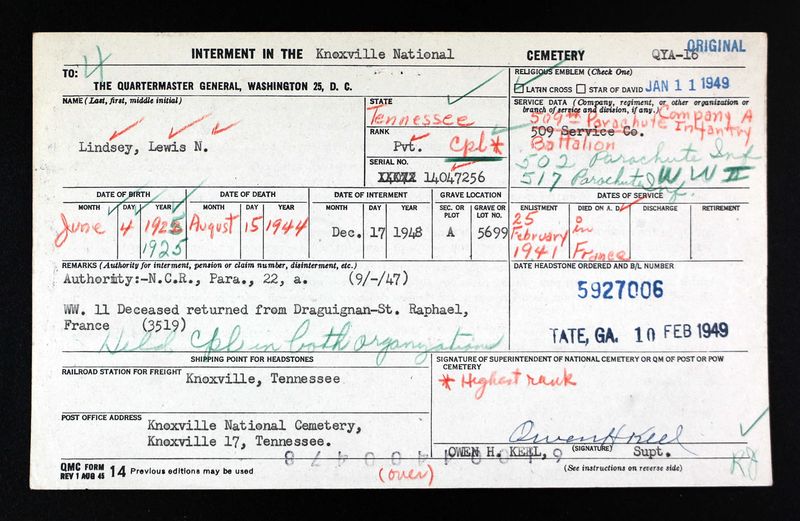 INTERMENT IN THE Knoxville National CEMETERY QYA-16 ORIGINAL
TO: 4
THE QUARTERMASTER GENERAL, WASHINGTON 25, D. C.
RELIGIOUS EMBLEM (Check One)
LATIN CROSS STAR OF DAVID JAN 11 1949
NAME (Last, first, middle initial)
Lindsey, Lewis N.
STATE
Tennessee
RANK
Pvt. Cpl*
SERIAL NO.
14047256
SERVICE DATA (Company, regiment, or other organization or branch of service and division, if any.)
Company A
509th Parachute Infantry
509 Service Co.
Battalion
502 Parachute Inf
517 Parachute Inf. WW II
DATE OF BIRTH
MONTH DAY YEAR
June 4 1925
1925
DATE OF DEATH
MONTH DAY YEAR
August 15 1944
DATE OF INTERMENT
MONTH DAY YEAR
Dec. 17 1948
GRAVE LOCATION
SEC. OR PLOT GRAVE OR LOT NO.
A 5699
DATES OF SERVICE
ENLISTMENT DIED ON A. D. DISCHARGE RETIREMENT
25 February 1941
in France
REMARKS (Authority for interment, pension or claim number, disinterment, etc.)
Authority:-N.C.R., Para., 22, a. (9/-/47)
WW. 11 Deceased returned from Draguignan-St. Raphael,
France (3519)
Held Cpl in both organizations
DATE HEADSTONE ORDERED AND B/L NUMBER
5927006
TATE, GA. 10 FEB 1949
SHIPPING POINT FOR HEADSTONES
RAILROAD STATION FOR FREIGHT
Knoxville, Tennessee
POST OFFICE ADDRESS
Knoxville National Cemetery,
Knoxville 17, Tennessee.
SIGNATURE OF SUPERINTENDENT OF NATIONAL CEMETERY OR QM OF POST OR POW CEMETERY
* Highest rank
Owen H Keel
OWEN H. KEEL, (SIGNATURE) Supt.
(See instructions on reverse side)
QMC FORM
REV 1 AUG 45 14 Previous editions may be used
(over)